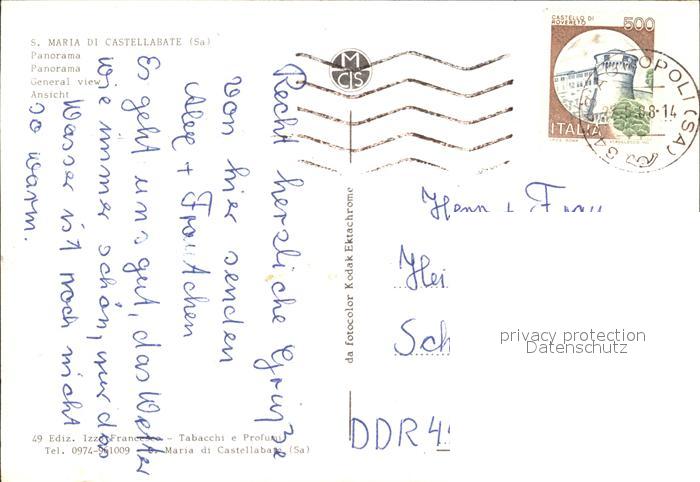 S. MARIA DI CASTELLABATE (Sa)
Panorama
Panorama
General view
Ansicht
MCS
CASTELLO DI
ROVERETO
500
ITALIA
OPOLI (SA)
Recht herzliche Grüße
von hier senden
+ Frauchen
Es geht uns gut, das Wetter
wie immer schön, nur das
Wasser ist noch nicht
so warm.
da fotocolor Kodak Ektachrome
Herrn + Frau
Hei
Sch
DDR 4
privacy protection
Datenschutz
49 Ediz. Izzo Francesco - Tabacchi e Profumi
Tel. 0974-961009 Maria di Castellabate (Sa)